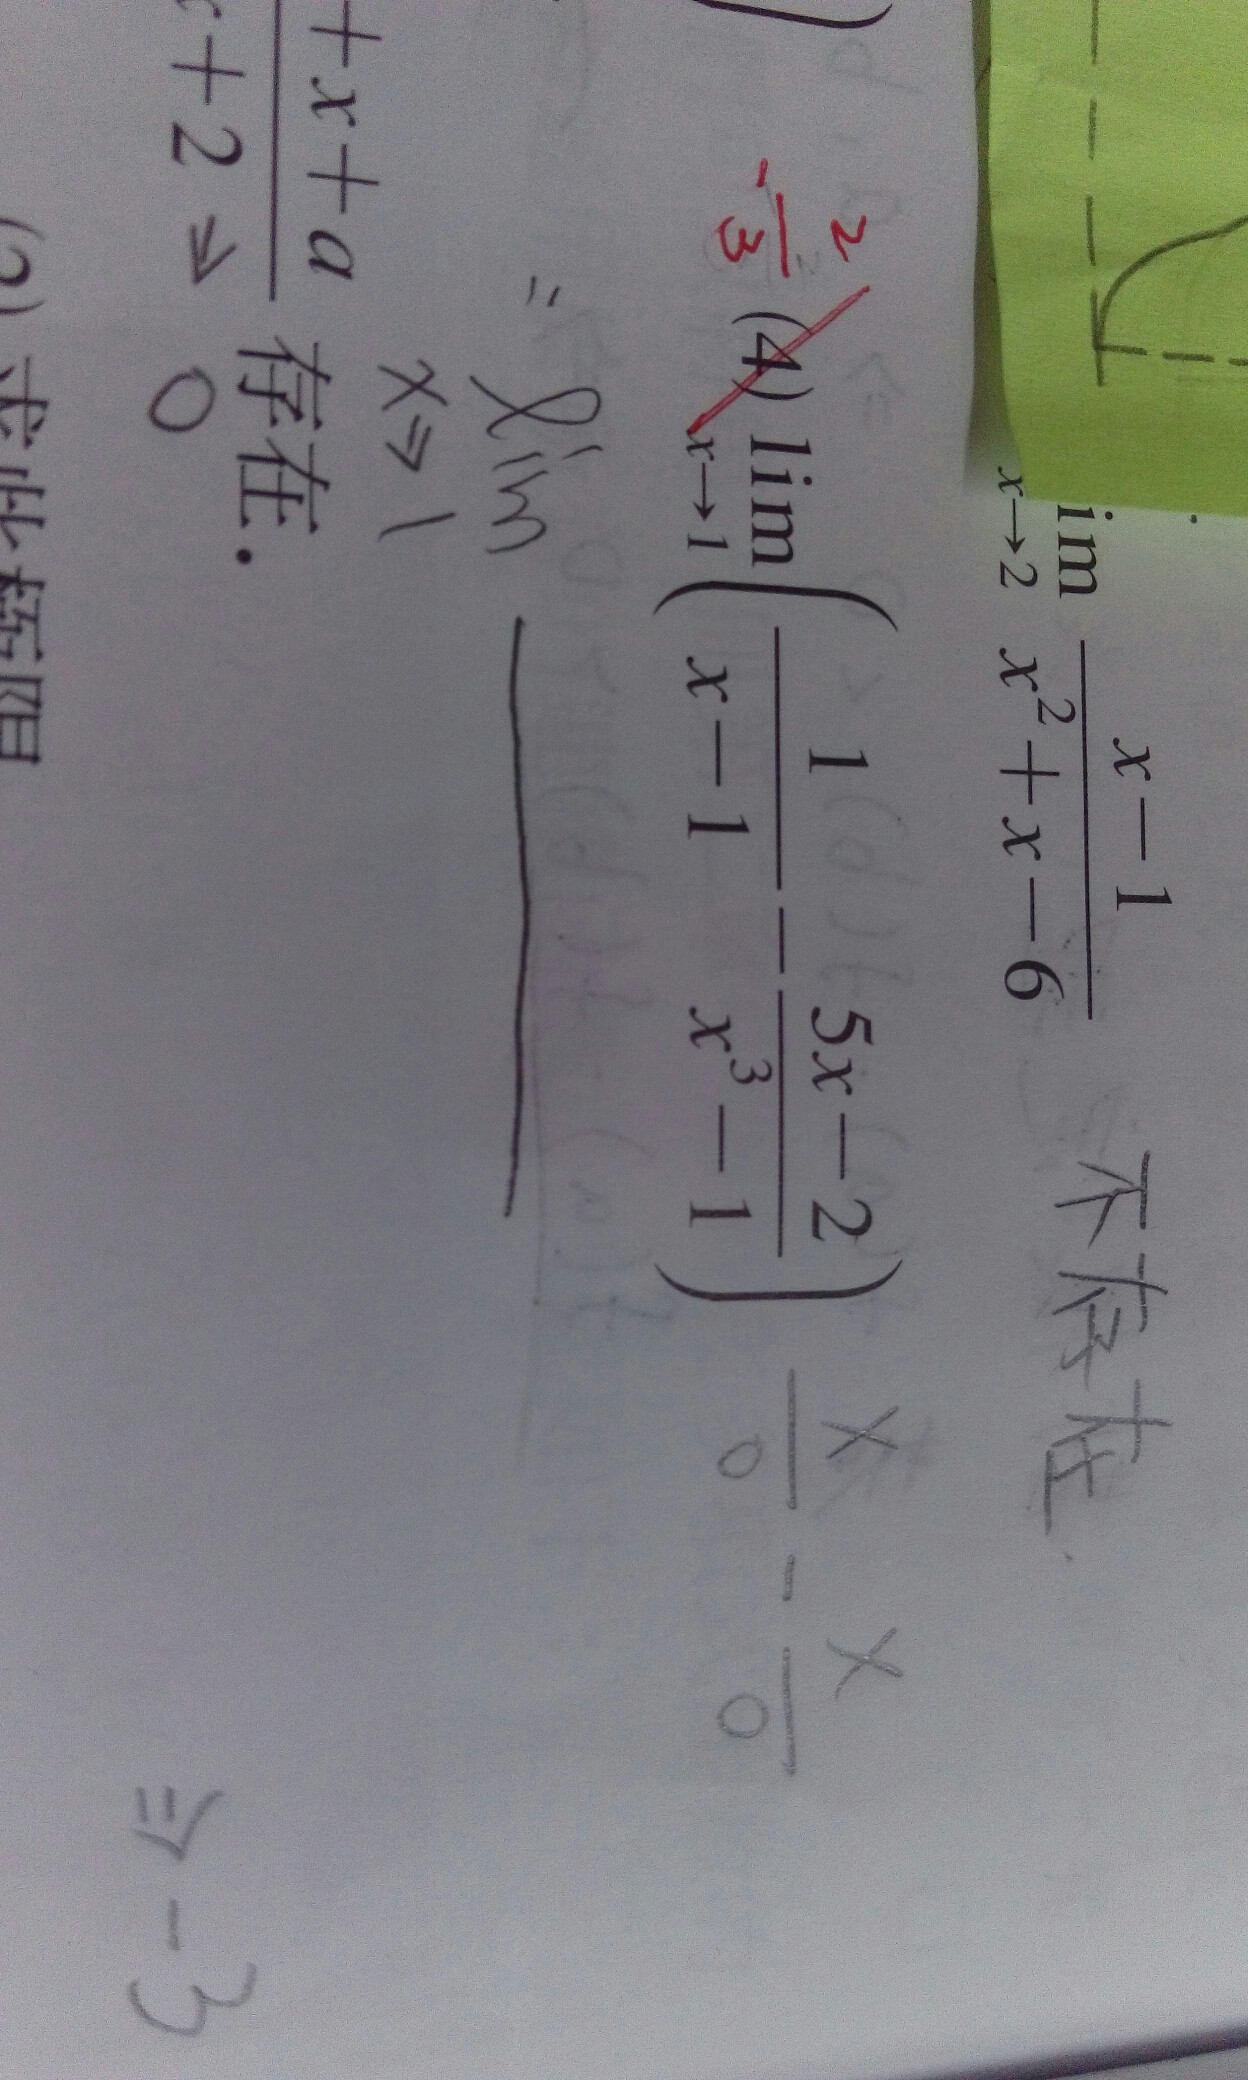 lim x→2 (x-1)/(x²+x-6) 不存在.
-2/3 (4) lim x→1 (1/(x-1) - (5x-2)/(x³-1)) x/0 - x/0
= lim x→1
+x+a
x+2 → 0 存在.
⇒ -3
(2) 求此極限